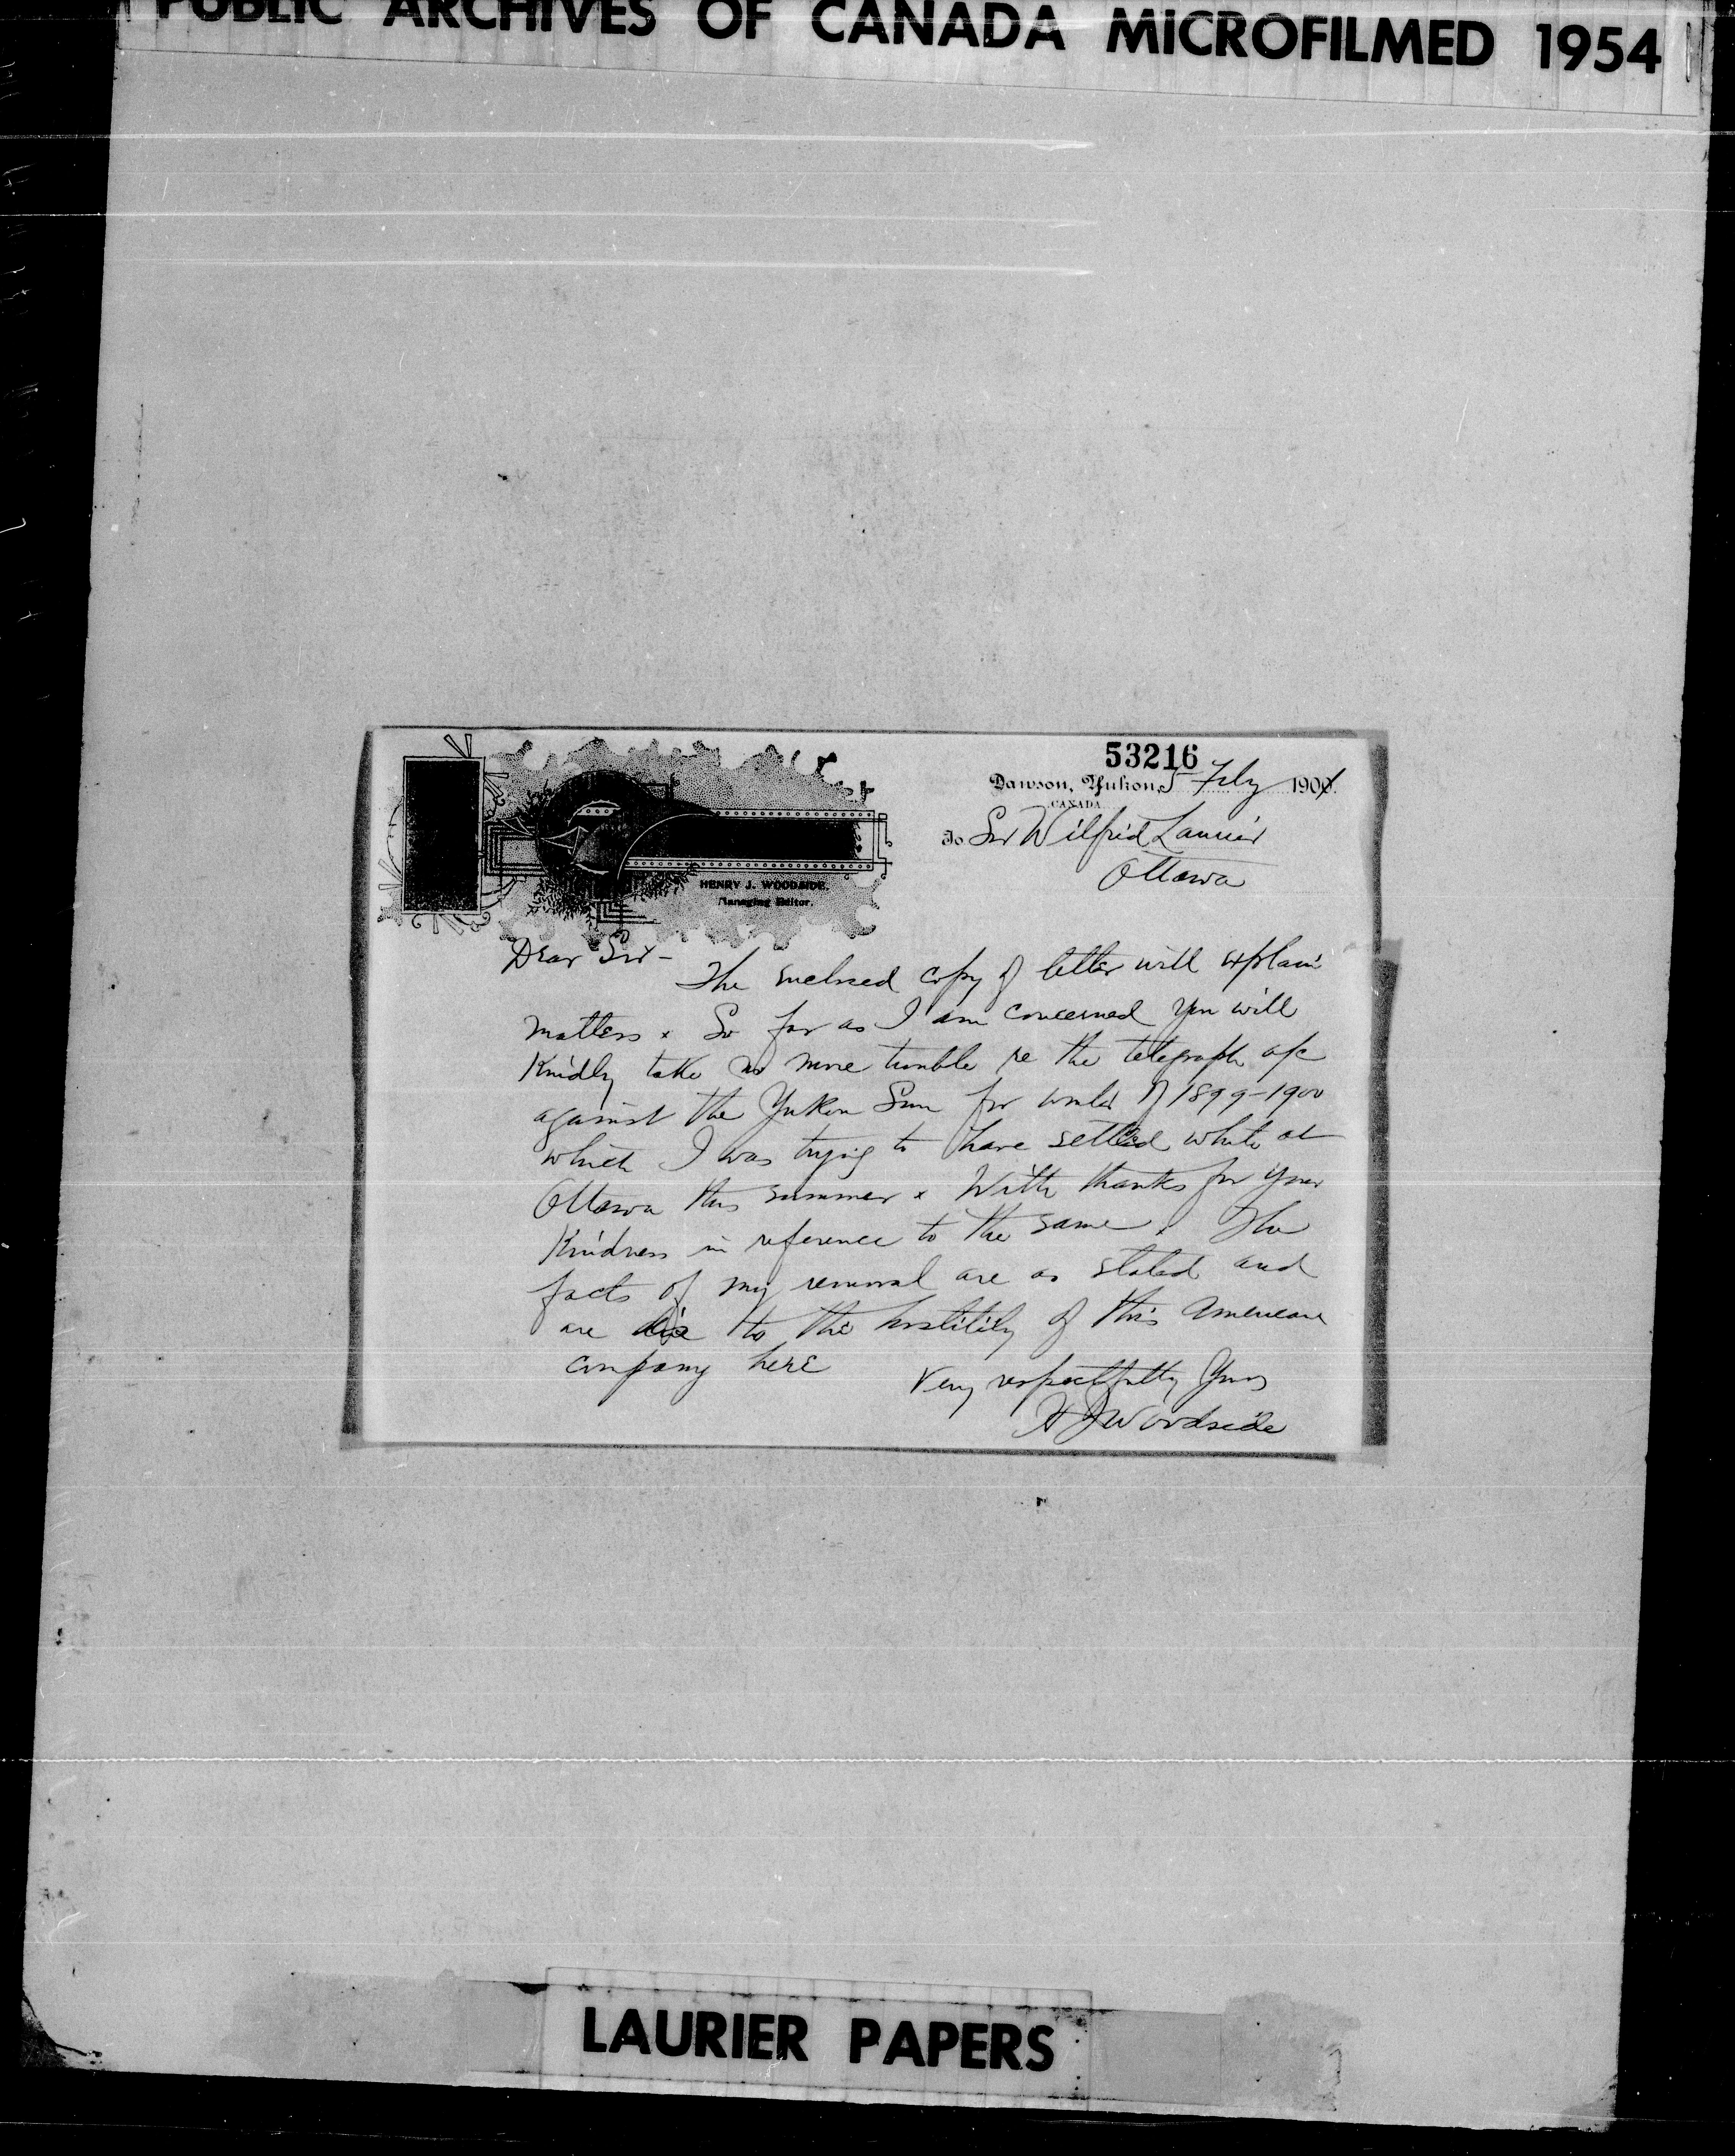 PUBLIC ARCHIVES OF CANADA MICROFILMED 1954
53216
Dawson, Yukon, 5 Feby 1901
CANADA
To Sir Wilfrid Laurier
Ottawa
HENRY J. WOODSIDE,
Managing Editor.
Dear Sir -
The enclosed copy of letter will explain
matters x So far as I am concerned you will
Kindly take no more trouble re the telegraph a/c
against the Yukon Sun for winter of 1899-1900
which I was trying to have settled while at
Ottawa this summer x With thanks for your
Kindness in reference to the same x The
facts of my removal are as stated and
are due to the hostility of this American
company here
Very respectfully Yours
H J Woodside
LAURIER PAPERS